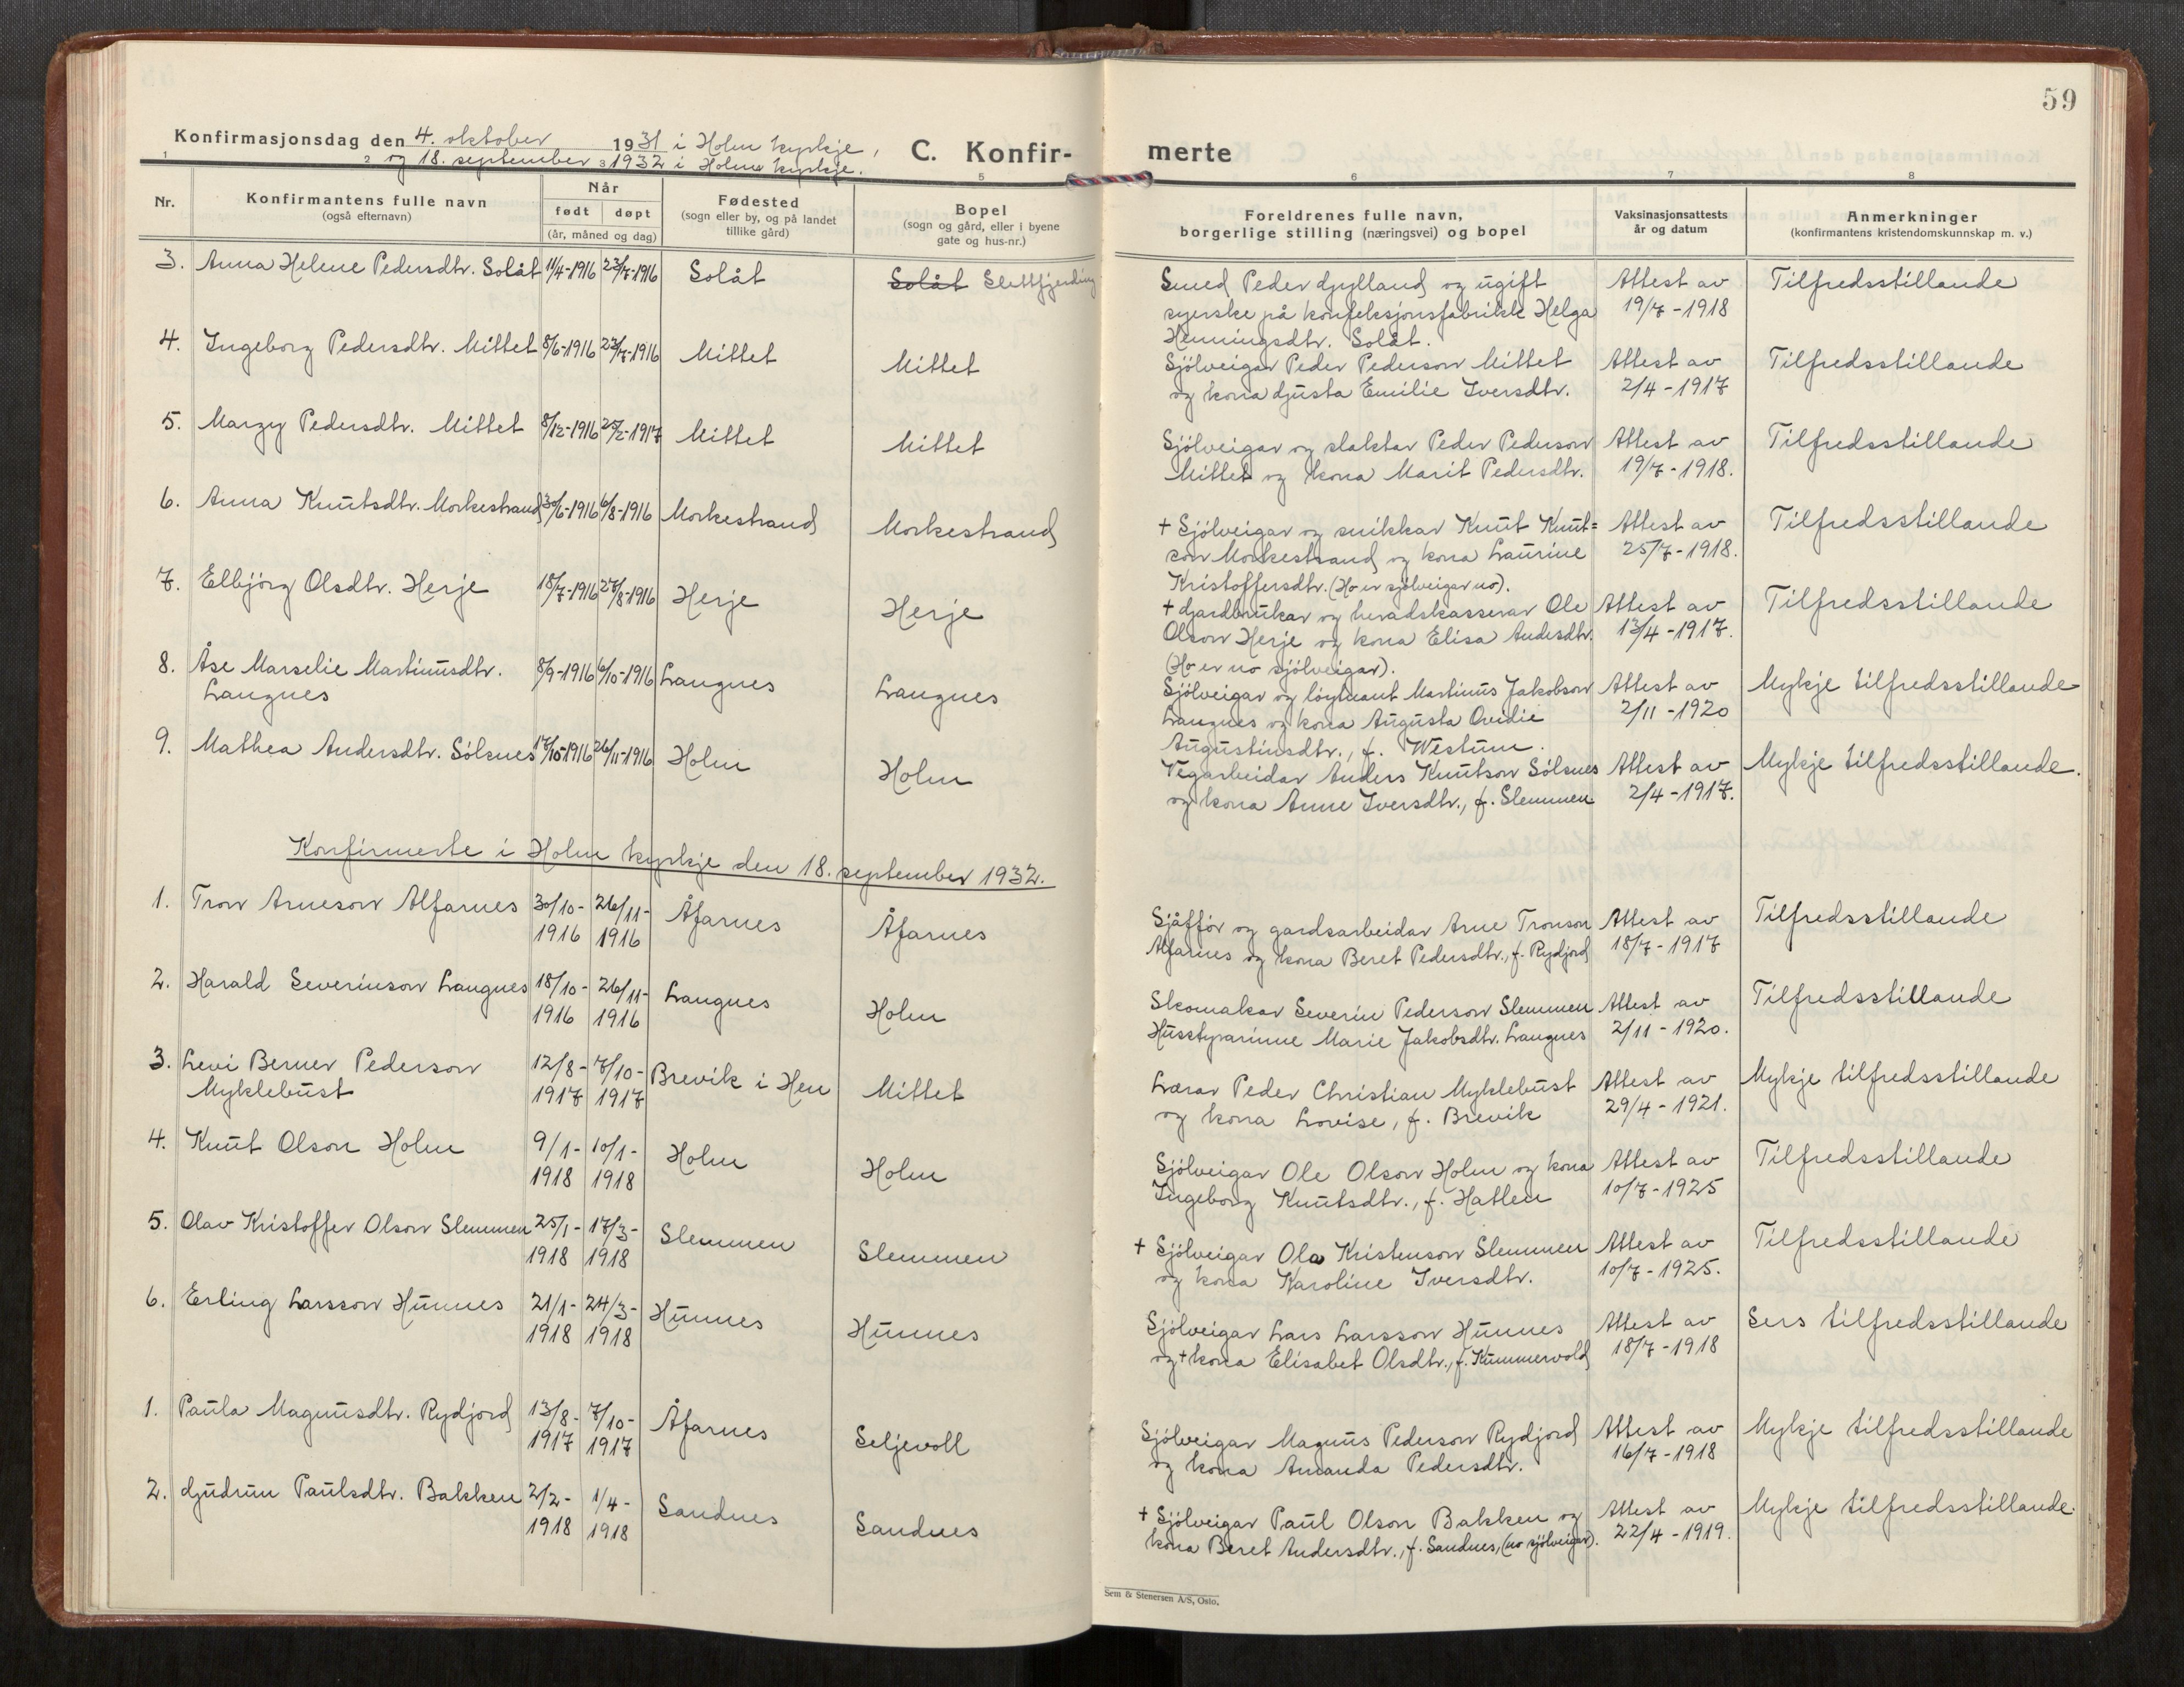 59
Konfirmasjonsdag den 4. oktober 1931 i Holm kyrkje,
og 18. september 1932 i Holm kyrkje.
C. Konfir-
merte
1 2 3 5 6 7 8
Nr.
Konfirmantens fulle navn
(også efternavn)
Når
født døpt
(år, måned og dag)
Fødested
(sogn eller by, og på landet
tillike gård)
Bopel
(sogn og gård, eller i byene
gate og hus-nr.)
Foreldrenes fulle navn,
borgerlige stilling (næringsvei) og bopel
Vaksinasjonsattests
år og datum
Anmerkninger
(konfirmantens kristendomskunnskap m. v.)
3. Anna Helene Pedersdtr. Solåt 11/4-1916 23/7-1916 Solåt Solåt
Smed Peder Gylland og ugift
syerske på konfeksjonsfabrikk Helga
Henningsdtr. Solåt.
Attest av
19/7-1918
Tilfredsstillande
4. Ingeborg Pedersdtr. Mittet 8/6-1916 23/7-1916 Mittet Mittet
Sjölveigar Peder Pederson Mittet
og kona Gjusta Emilie Iversdtr.
Attest av
2/4-1917
Tilfredsstillande
5. Margy Pedersdtr. Mittet 8/12-1916 25/2-1917 Mittet Mittet
Sjölveigar og slaktar Peder Pederson
Mittet og kona Marit Pedersdtr.
Attest av
19/7-1918.
Tilfredsstillande
6. Anna Knutsdtr. Morkestrand 30/6-1916 6/8-1916 Morkestrand Morkestrand
+ Sjölveigar og snikkar Knut Knut=
son Morkestrand og kona Laurine
Kristoffersdtr. (Ho er sjölveigar no).
Attest av
25/7-1918.
Tilfredsstillande
7. Elbjörg Olsdtr. Herje 18/7-1916 27/8-1916 Herje Herje
+ Gardbrukar og heradskasserar Ole
Olson Herje og kona Elisa Andersdtr.
(Ho er no sjölveigar).
Attest av
13/4-1917.
Tilfredsstillande
8. Åse Marselie Martinusdtr.
Langnes
8/9-1916 6/10-1916 Langnes Langnes
Sjölveigar og löytnant Martinus Jakobson
Langnes og kona Augusta Ovidie
Augustinsdtr., f. Westum.
Attest av
2/11-1920
Mykje tilfredsstillande
9. Mathea Andersdtr. Sölsnes 17/10-1916 26/11-1916 Holm Holm
Vegarbeidar Anders Knutson Sölsnes
og kona Anne Iversdtr., f. Slemmen
Attest av
2/4-1917.
Mykje tilfredsstillande.
Konfirmerte i Holm kyrkje den 18. september 1932.
1. Tron Arneson Alfarnes 30/10-1916 26/11-1916 Åfarnes Åfarnes
Sjåfför og gardsarbeidar Arne Tronson
Alfarnes og kona Beret Pedersdtr., f. Rydjord
Attest av
18/7-1917
Tilfredsstillande
2. Harald Severinson Langnes 18/10-1916 26/11-1916 Langnes Holm
Skomakar Severin Pederson Slemmen
Husstyrarinne Marie Jakobsdtr. Langnes
Attest av
2/11-1920.
Tilfredsstillande
3. Levi Berner Pederson
Myklebust
12/8-1917 7/10-1917 Brevik i Hen Mittet
Lærar Peder Christian Myklebust
og kona Lovise, f. Brevik
Attest av
29/4-1921.
Mykje tilfredsstillande
4. Knut Olson Holm 9/1-1918 10/1-1918 Holm Holm
Sjölveigar Ole Olson Holm og kona
Ingeborg Knutsdtr., f. Hatlen
Attest av
10/7-1925
Tilfredsstillande
5. Olav Kristoffer Olson Slemmen 25/1-1918 17/3-1918 Slemmen Slemmen
+ Sjölveigar Ola Kristenson Slemmen
og kona Karoline Iversdtr.
Attest av
10/7-1925.
Tilfredsstillande
6. Erling Larsson Hunnes 21/1-1918 24/3-1918 Hunnes Hunnes
Sjölveigar Lars Larsson Hunnes
og + kona Elisabet Olsdtr., f. Kummervold
Attest av
18/7-1918
Sers tilfredsstillande
1. Paula Magnusdtr. Rydjord 13/8-1917 7/10-1917 Åfarnes Seljevoll
Sjölveigar Magnus Pederson Rydjord
og kona Amanda Pedersdtr.
Attest av
16/7-1918
Mykje tilfredsstillande
2. Gudrun Paulsdtr. Bakken 2/2-1918 1/4-1918 Sandnes Sandnes
+ Sjölveigar Paul Olson Bakken og
kona Beret Andersdtr., f. Sandnes, (no sjölveigar).
Attest av
22/4-1919.
Mykje tilfredsstillande.
Sem & Stenersen A/S, Oslo.